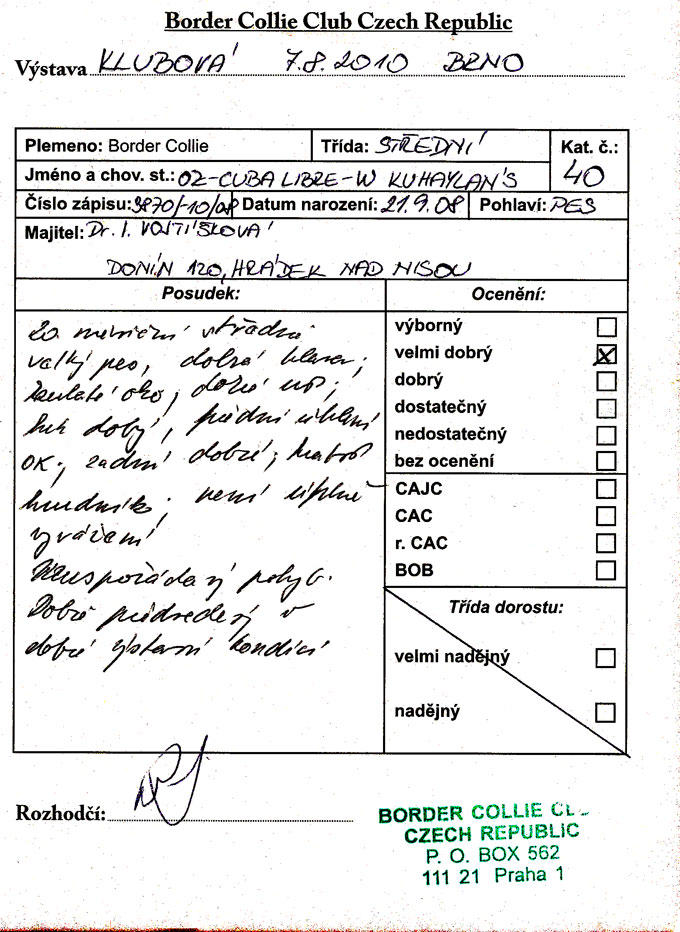 Border Collie Club Czech Republic
Výstava KLUBOVÁ 7.8.2010 BRNO
Plemeno: Border Collie Třída: STŘEDNÍ Kat. č.: 40
Jméno a chov. st.: OZ-CUBA LIBRE-W KUHAYLAN'S
Číslo zápisu: 3870/-10/08 Datum narození: 21.9.08 Pohlaví: PES
Majitel: Dr. I. VOJTÍŠKOVÁ
DONÍN 120, HRÁDEK NAD NISOU
Posudek:
20 měsíční středně
velký pes, dobrá hlava;
kulaté oko, dobré
dobrý, přední úhlení
OK; zadní dobré;
hrudníku; není úplně
vyvážený
pohyb.
Dobře předvedený v
dobré výstavní kondici
Ocenění:
výborný
velmi dobrý X
dobrý
dostatečný
nedostatečný
bez ocenění
CAJC
CAC
r. CAC
BOB
Třída dorostu:
velmi nadějný
nadějný
Rozhodčí:
BORDER COLLIE
CZECH REPUBLIC
P. O. BOX 562
111 21 Praha 1